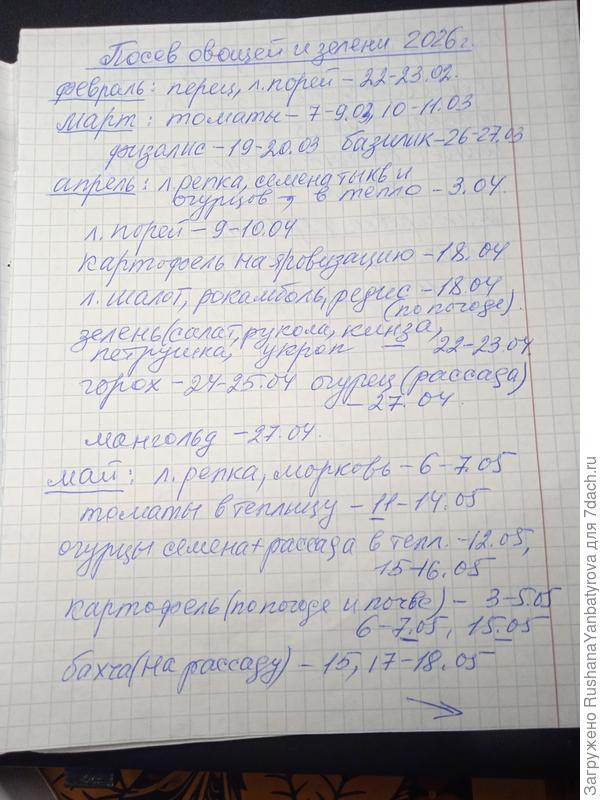 Посев овощей и зелени 2026г.
февраль: перец, л.порей – 22-23.02.
Март: томаты – 7-9.03, 10-11.03
физалис – 19-20.03 базилик – 26-27.03
апрель: л.репка, семена тыкв и
огурцов → в тепло – 3.04.
л. порей – 9-10.04
картофель на яровизацию – 18.04
л. шалот, рокамболь, редис – 18.04
(по погоде).
зелень (салат, рукола, кинза,
петрушка, укроп 22-23.04.
горох – 24-25.04 огурец (рассада)
– 27.04.
мангольд – 27.04.
май: л.репка, морковь – 6-7.05
томаты в теплицу – 11-14.05
огурцы семена+рассада в тепл. – 12.05,
15-16.05
картофель (по погоде и почве) – 3-5.05
6-7.05, 15.05
бахча (на рассаду) – 15, 17-18.05
Загружено RushanaYanbatyrova для 7dach.ru